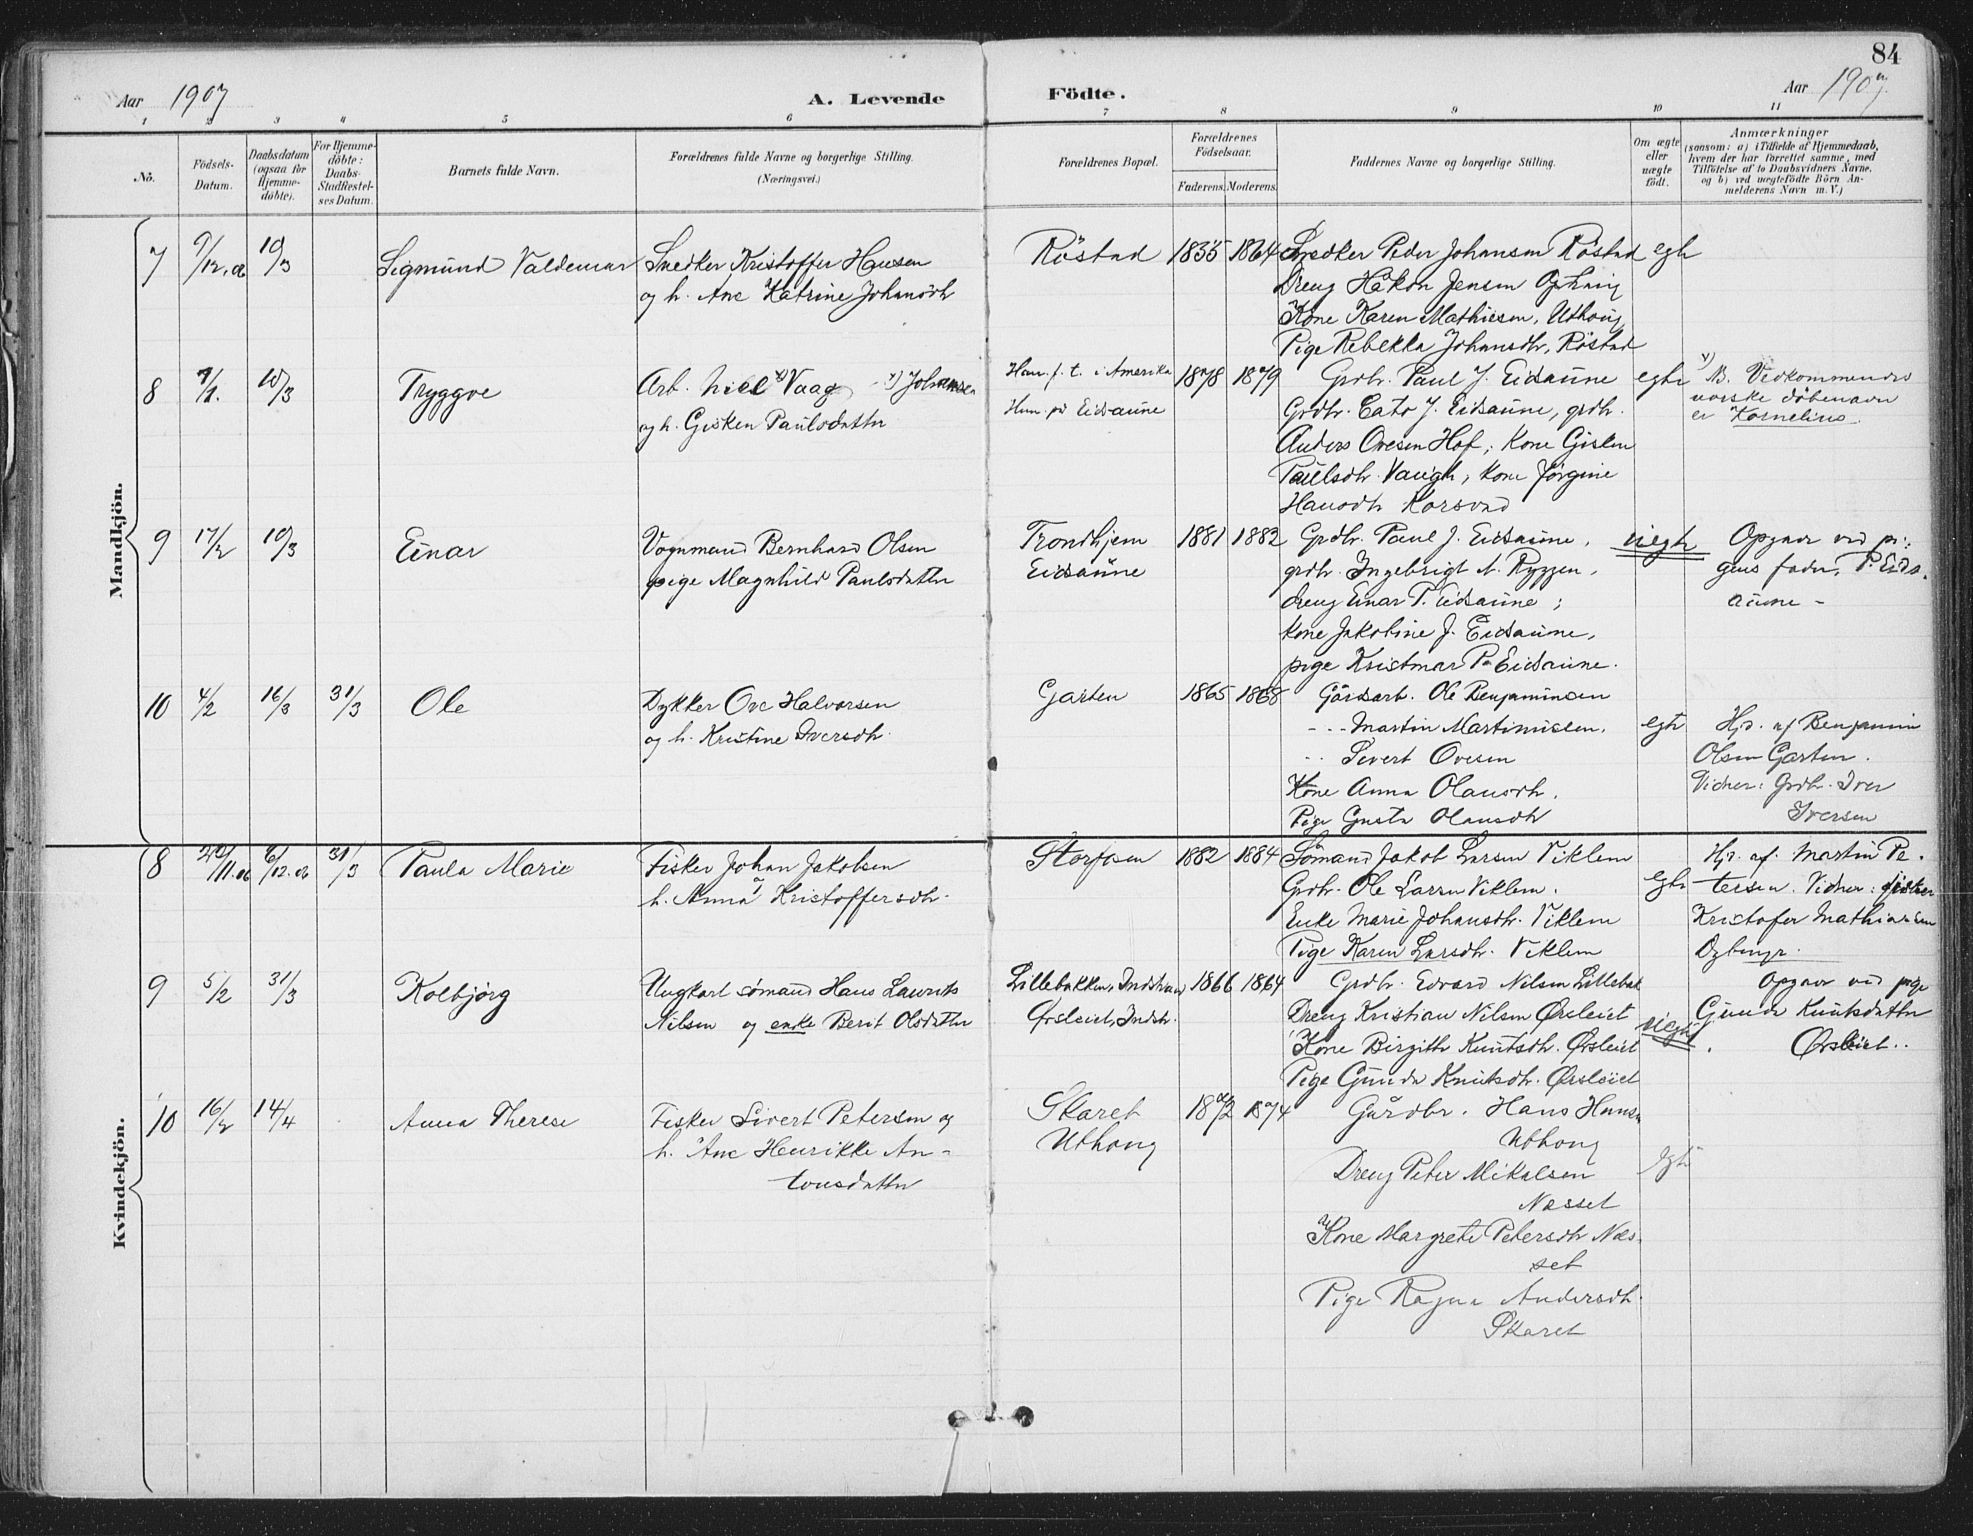 84
Aar 1907 A. Levende Födte. Aar 1907.
1 2 3 4 5 6 7 8 9 10 11
No.
Födsels-
Datum.
Daabsdatum
(ogsaa for
Hjemme-
döbte).
For Hjemme-
döbte:
Daabs-
Stadfæstel-
ses Datum.
Barnets fulde Navn.
Forældrenes fulde Navne og borgerlige Stilling.
(Næringsvei.)
Forældrenes Bopæl.
Forældrenes
Födselsaar.
Faderens. Moderens.
Faddernes Navne og borgerlige Stilling.
Om ægte
eller
uægte
födt.
Anmærkninger
(saasom: a) i Tilfælde af Hjemmedaab,
hvem der har forrettet samme, med
Tilföielse af to Daabsvidners Navne,
og b) ved uægtefödte Börn An-
melderens Navn m. V.)
Mandkjön.
7 9/12. 10/3 Sigmund Valdemar
Snedker Kristoffer Hansen
og h. Ane Katrine Johansdtr
Röstad 1835 1864
Snedker Peder Johansen Röstad egte
Dreng Håkon Jensen Ophaug
Kone Karen Mathiesen, Uthoug
Pige Rebekka Johansdtr, Röstad
8 7/1. 10/3 Tryggve
Arb. Niel x) Vaag x) Johansen
og h. Gisken Paulsdatter
Han f. t. i Amerika
Hun på Eidsaune
1878 1879
Grdbr. Paul J. Eidsaune egte
Grdbr. Cato J. Eidsaune, grdbr.
Anders Ovesen Hof; Kone Gisken
Paulsdtr Vaugh; kone Jörgine
Hansdtr Korsvad
x) NB. Vedkommendes
norske döbenavn
er Kornelius
9 17/2 10/3 Einar
Vognmand Bernhard Olsen
pige Magnhild Paulsdatter
Trondhjem
Eidsaune
1881 1882
Grdbr. Paul J. Eidsaune, uegte
grdbr. Ingebrigt N. Ryggen,
dreng Einar P. Eidsaune;
kone Jakobine J. Eidsaune,
pige Kristmar P. Eidsaune.
Opgav ved pi-
gens fader, P. Eids-
aune -
10 4/2 16/3 31/3 Ole
Dykker Ove Halvorsen
og h. Kristine Iversdtr.
Garten 1865 1868
Gårdsarb. Ole Benjaminsen
- - - Martin Martinusen, egte
- - Sivert Ovesen
Kone Anna Olausdtr.
Pige Gusta Olausdtr
Hjd. af Benjamin
Olsen Garten.
Vidner: Grdbr. Iver
Iversen
Kvindekjön.
8 20/11.06 6/12.06 31/3 Paula Marie
Fisker Johan Jakobsen
h. Anna Kristoffersdtr.
Storfosen 1882 1884
Sömand Jakob Larsen Viklem
Grdbr. Ole Larsen Viklem. egte
Enke Marie Johansdtr. Viklem
Pige Karen Larsdtr. Viklem
Hjd. af. Martin Pe-
tersen. Vidner: fisker
Kristofer Mathiassen
9 5/2 31/3 Kolbjörg
Ungkarl sömand Hans Laurits
Nilsen og enke Berit Olsdatter
Lillebakken, Indstran
Ørsleiet, Indstr.
1866 1864
Grdbr. Edvard Nilsen Lillebak
Dreng Kristian Nilsen Ørsleiet uegte
Kone Birgitte Knutsdtr. Ørsleiet
Pige Gunda Knutsdtr. Ørsleiet
Opgav ved pige
Gunda Knutsdatter
Ørsleiet.
10 16/2 14/4 Anna Therese
Fisker Sivert Petersen og
h. Ane Henrikke An-
tonsdatter
Skaret
Uthoug
1872 1874
Gårdbr. Hans Hansen
Uthoug
Dreng Peter Mikalsen egte
Næsset
Kone Margrete Petersdtr Næs-
set
Pige Ragna Andersdtr.
Skaret